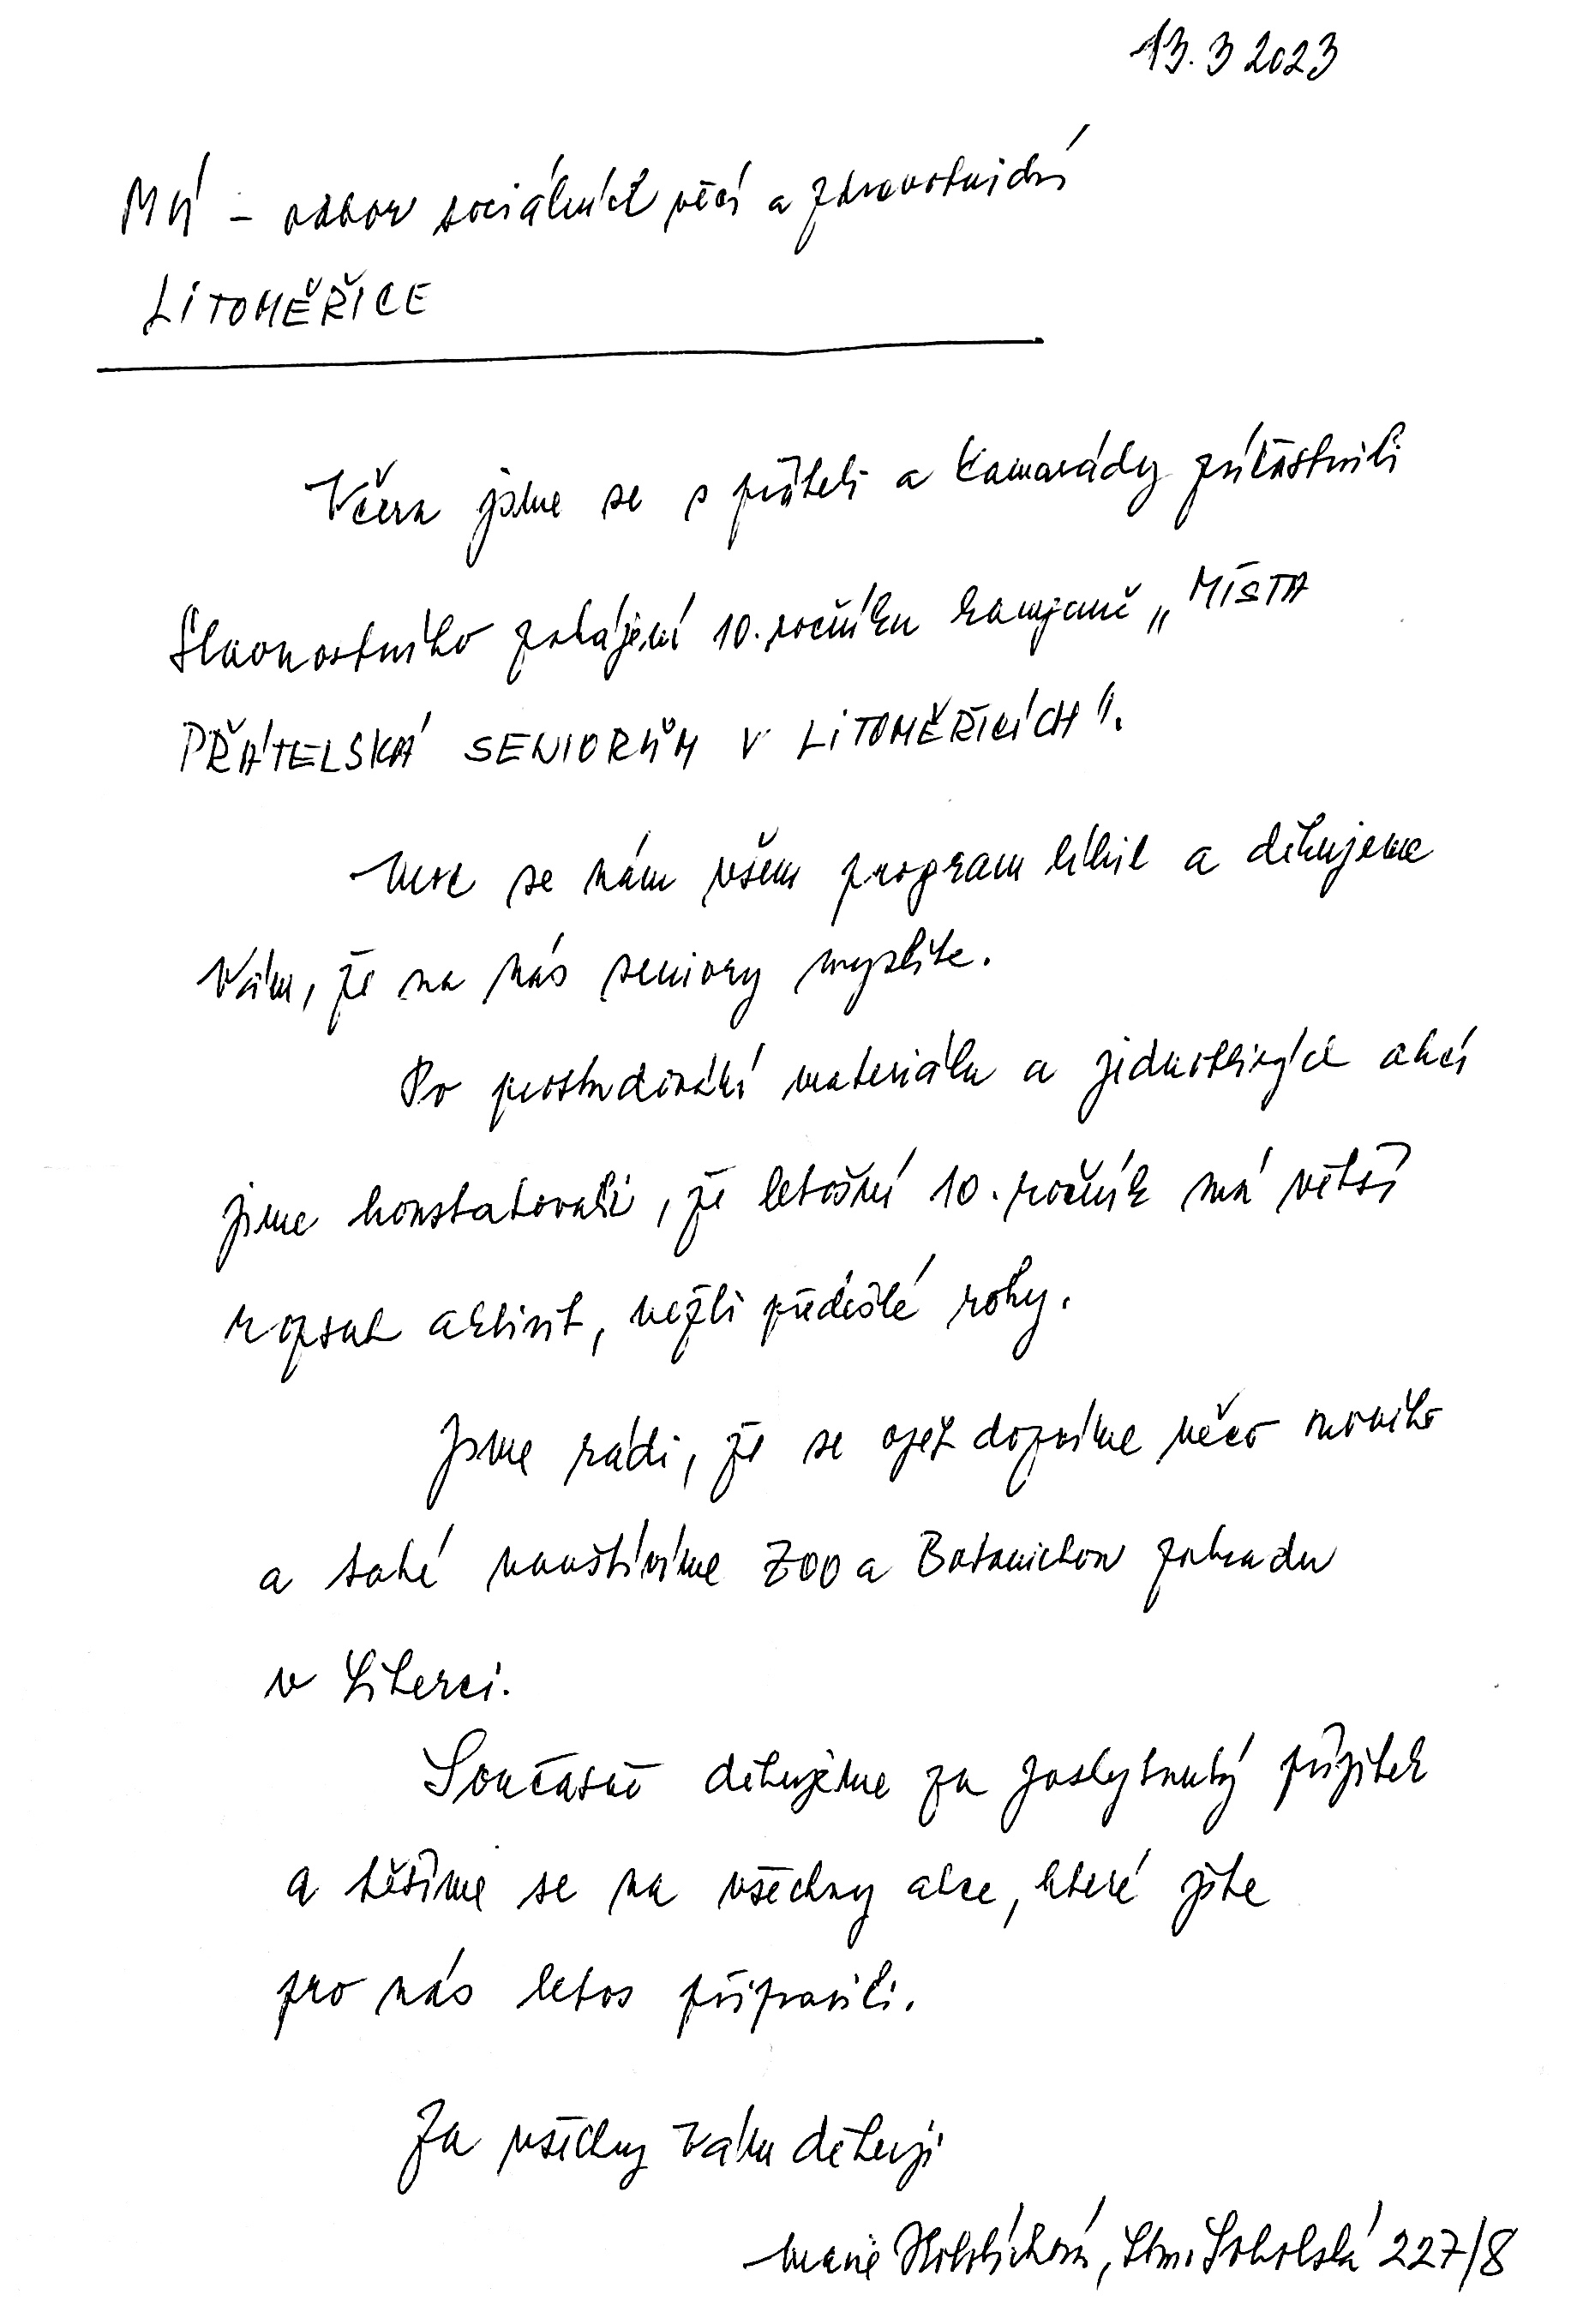 13. 3 2023
MÚ - odbor sociálních věcí a zdravotnictví
LITOMĚŘICE
Včera jsme se s přáteli a kamarády zúčastnili
slavnostního zahájení 10. ročníku kampaně „MÍSTA
PŘÁTELSKÁ SENIORŮM V LITOMĚŘICÍCH".
Moc se nám všem program líbil a děkujeme
Vám, že na nás seniory myslíte.
Po prostudování materiálu a jednotlivých akcí
jsme konstatovali, že letošní 10. ročník má větší
rozsah aktivit, nežli předešlé roky.
Jsme rádi, že se opět dozvíme něco nového
a také navštívíme ZOO a Botanickou zahradu
v Liberci.
Současně děkujeme za poskytnutý přípitek
a těšíme se na všechny akce, které jste
pro nás letos připravili.
Za všechny Vám děkuji
Marie, Ltm. Sokolská 227/8